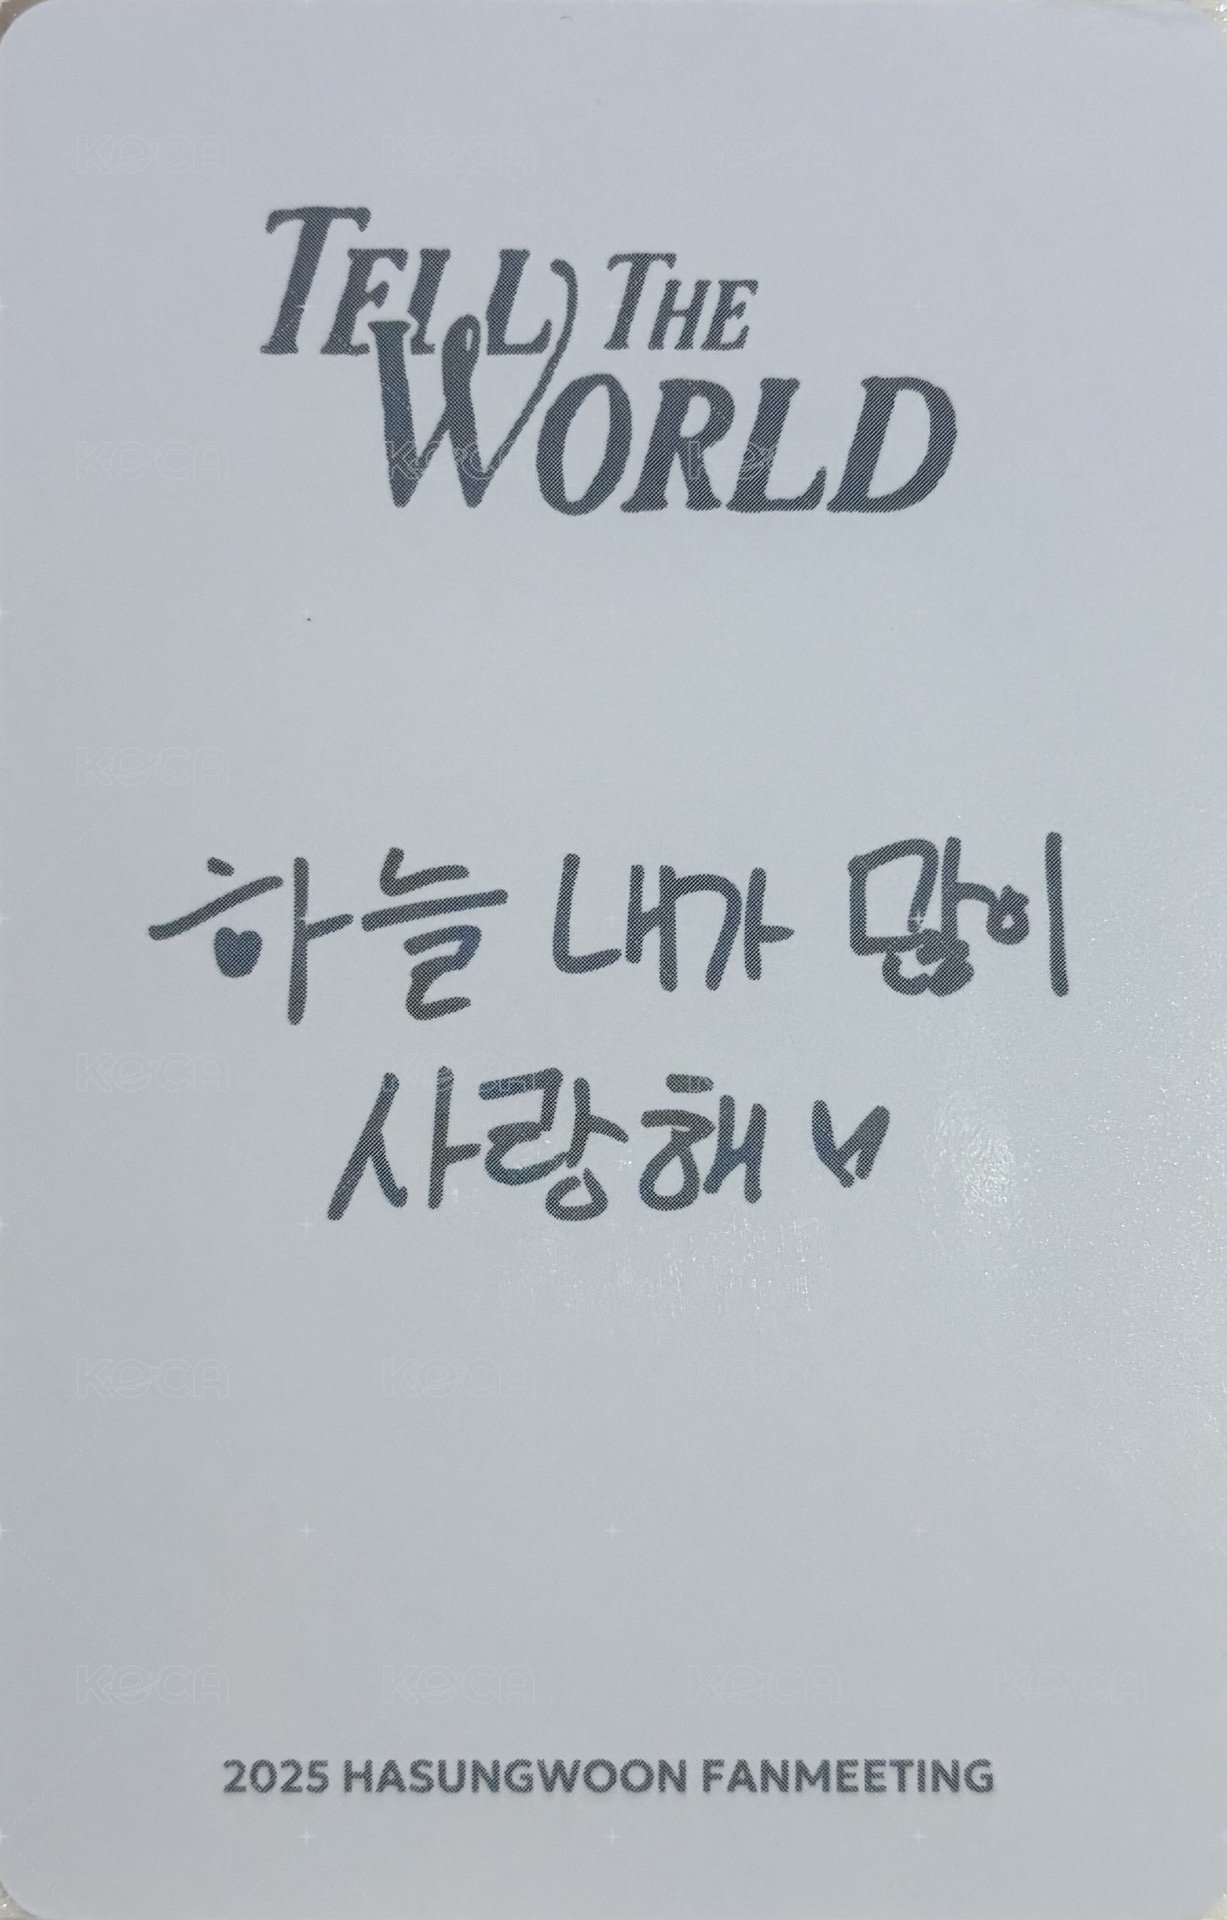 TELL THE
WORLD
하늘 내가 많이
사랑해
2025 HASUNGWOON FANMEETING